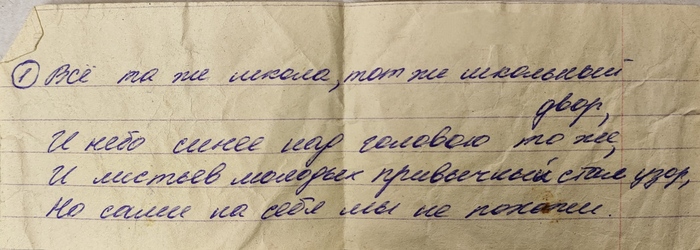 ① Всё та же школа, тот же школьный
двор,
И небо синее над головою то же,
И листьев молодых привычный стал узор,
Но сами на себя мы не похожи.